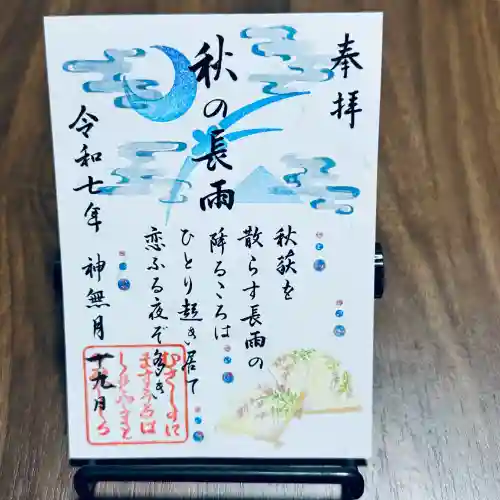 奉拝
秋の長雨
秋萩を
散らす長雨の
降るころは
ひとり起き居て
恋ふる夜ぞ多き
令和七年 神無月 十九月